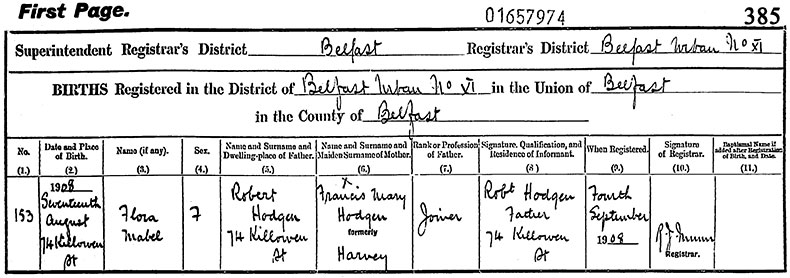 First Page.
01657974
385
Superintendent Registrar's District Belfast Registrar's District Belfast Urban No XI
BIRTHS Registered in the District of Belfast Urban No XI in the Union of Belfast
in the County of Belfast
No. (1.)
Date and Place of Birth. (2.)
Name (if any). (3.)
Sex. (4.)
Name and Surname and Dwelling-place of Father. (5.)
Name and Surname and Maiden Surname of Mother. (6.)
Rank or Profession of Father. (7.)
Signature, Qualification, and Residence of Informant. (8)
When Registered. (9.)
Signature of Registrar. (10.)
Baptismal Name if added after Registration of Birth, and Date. (11.)
153
1908
Seventeenth
August
74 Killowen
St
Flora
Mabel
F
Robert
Hodgen
74 Killowen
St
X
Francis Mary
Hodgen
formerly
Harvey
Joiner
Robt Hodgen
Father
74 Killowen
St
Fourth
September
1908
Registrar.